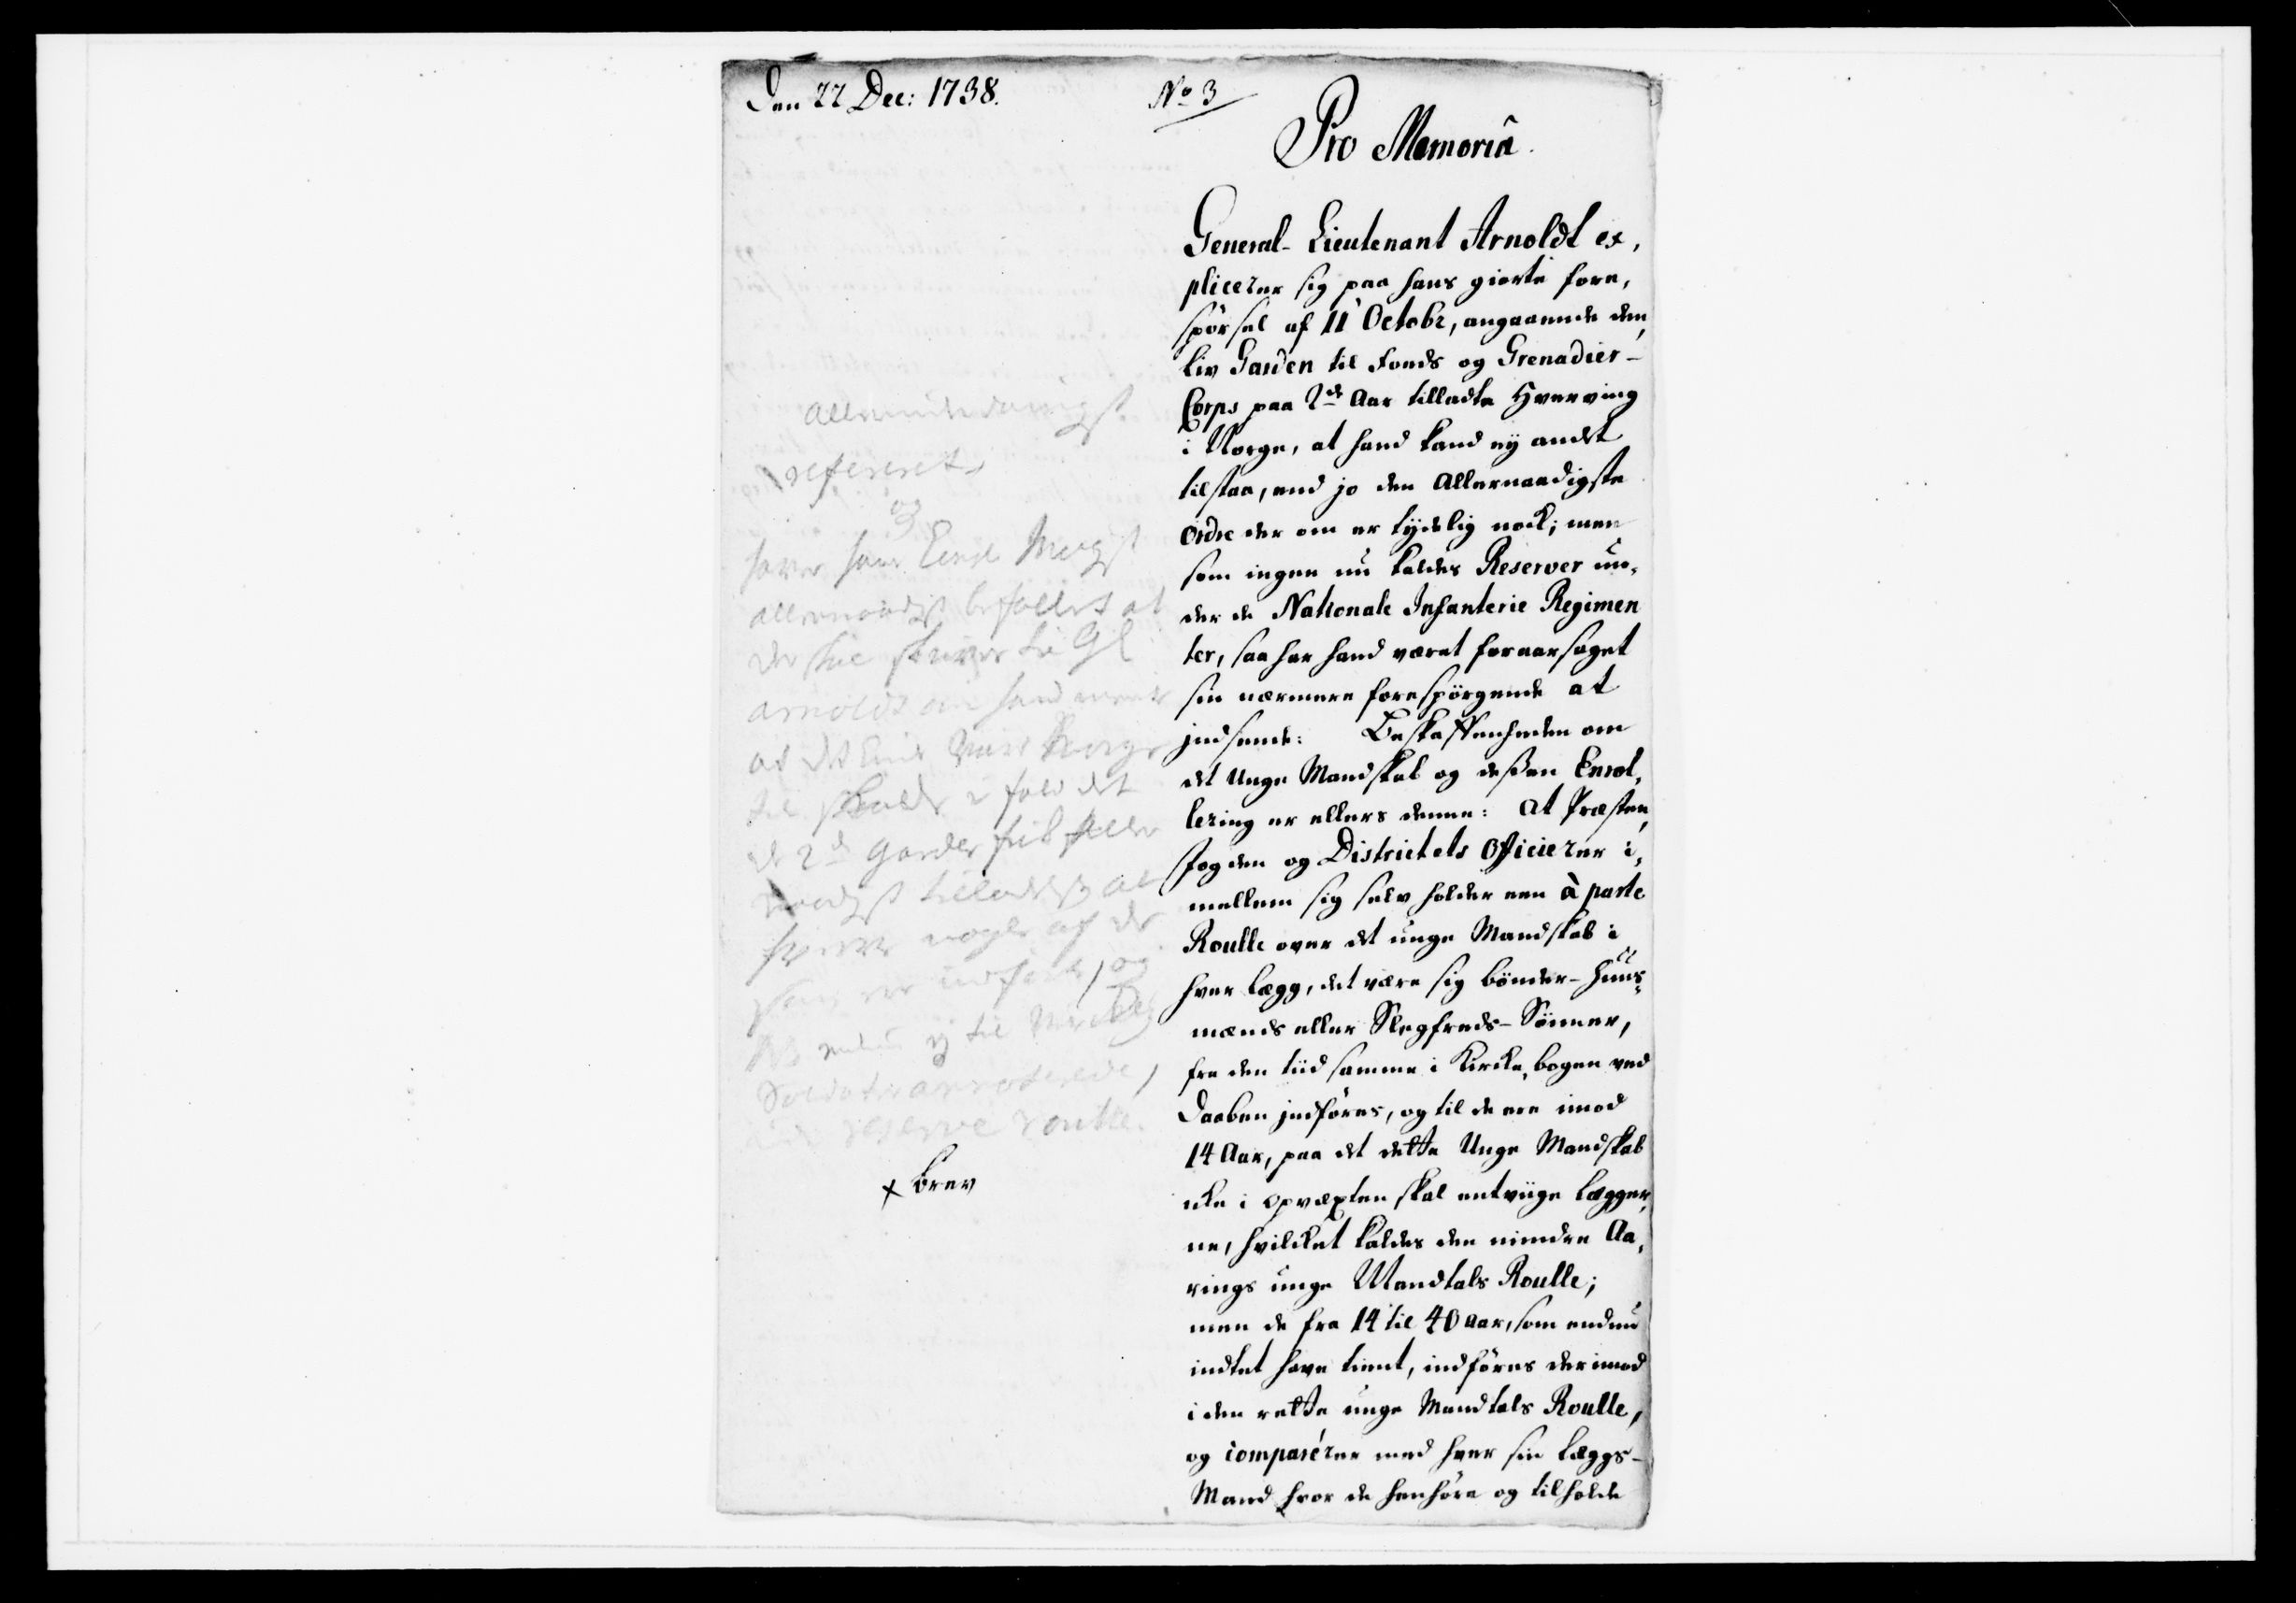 Den 22 Dec: 1738.
No 3
Pro Memoriâ.
General-Lieutenant Arnoldt ex,
plicerer sig paa hans giorte fore,
spörsel af 11 Octobr, angaaende den
Liv Garden til Fods og Grenadier-
Corps paa 2de Aar tilladte Hverving
i Norge, at hand kand ej andet
tilstaa, end jo den Allernaadigste
Ordre der om er tydelig nock; men
som ingen nu kaldes Reserver un,
der de Nationale Infanterie Regimen
ter, saa har hand været foraarsaget
sin nærmere forespörgende at
jndsende: Beskaffenheden om
det Unge Mandskab og deßen Enrol,
lering er ellers denne: At Præsten,
Fogden og Districtets Officierer i,
mellem sig selv holder een à parte
Roulle over det unge Mandskab i
hver Lægg, det være sig bönder-Huus,
mænds eller Slegfreds-Sönner,
fra den tiid samme i Kircke,bogen ved
Daaben jndföres, og til de ere imod
14 Aar, paa det dette Unge Mandskab
icke i Opvæxten skal entviige Lægger,
ne, hvilcket kaldes den mindre Aa,
rings unge Mandtals Roulle;
men de fra 14 til 40 Aar, som endnu
indtet have tient, indföres derimod
i den rette unge Mandtals Roulle,
og comparérer med hver sin Læggs-
Mand hvor de henhöre og tilholde
Allerunderdanigst
refereret
og
haver hans Kongl Mayst
allernaadigst befallet at
der skal skrives til Gl
Arnoldt om hand meener
at det
til skade i fald det
de 2de Garder
tillades at
hverve nogle af de
og
ej til
Soldater
reserve roulle.
x brev